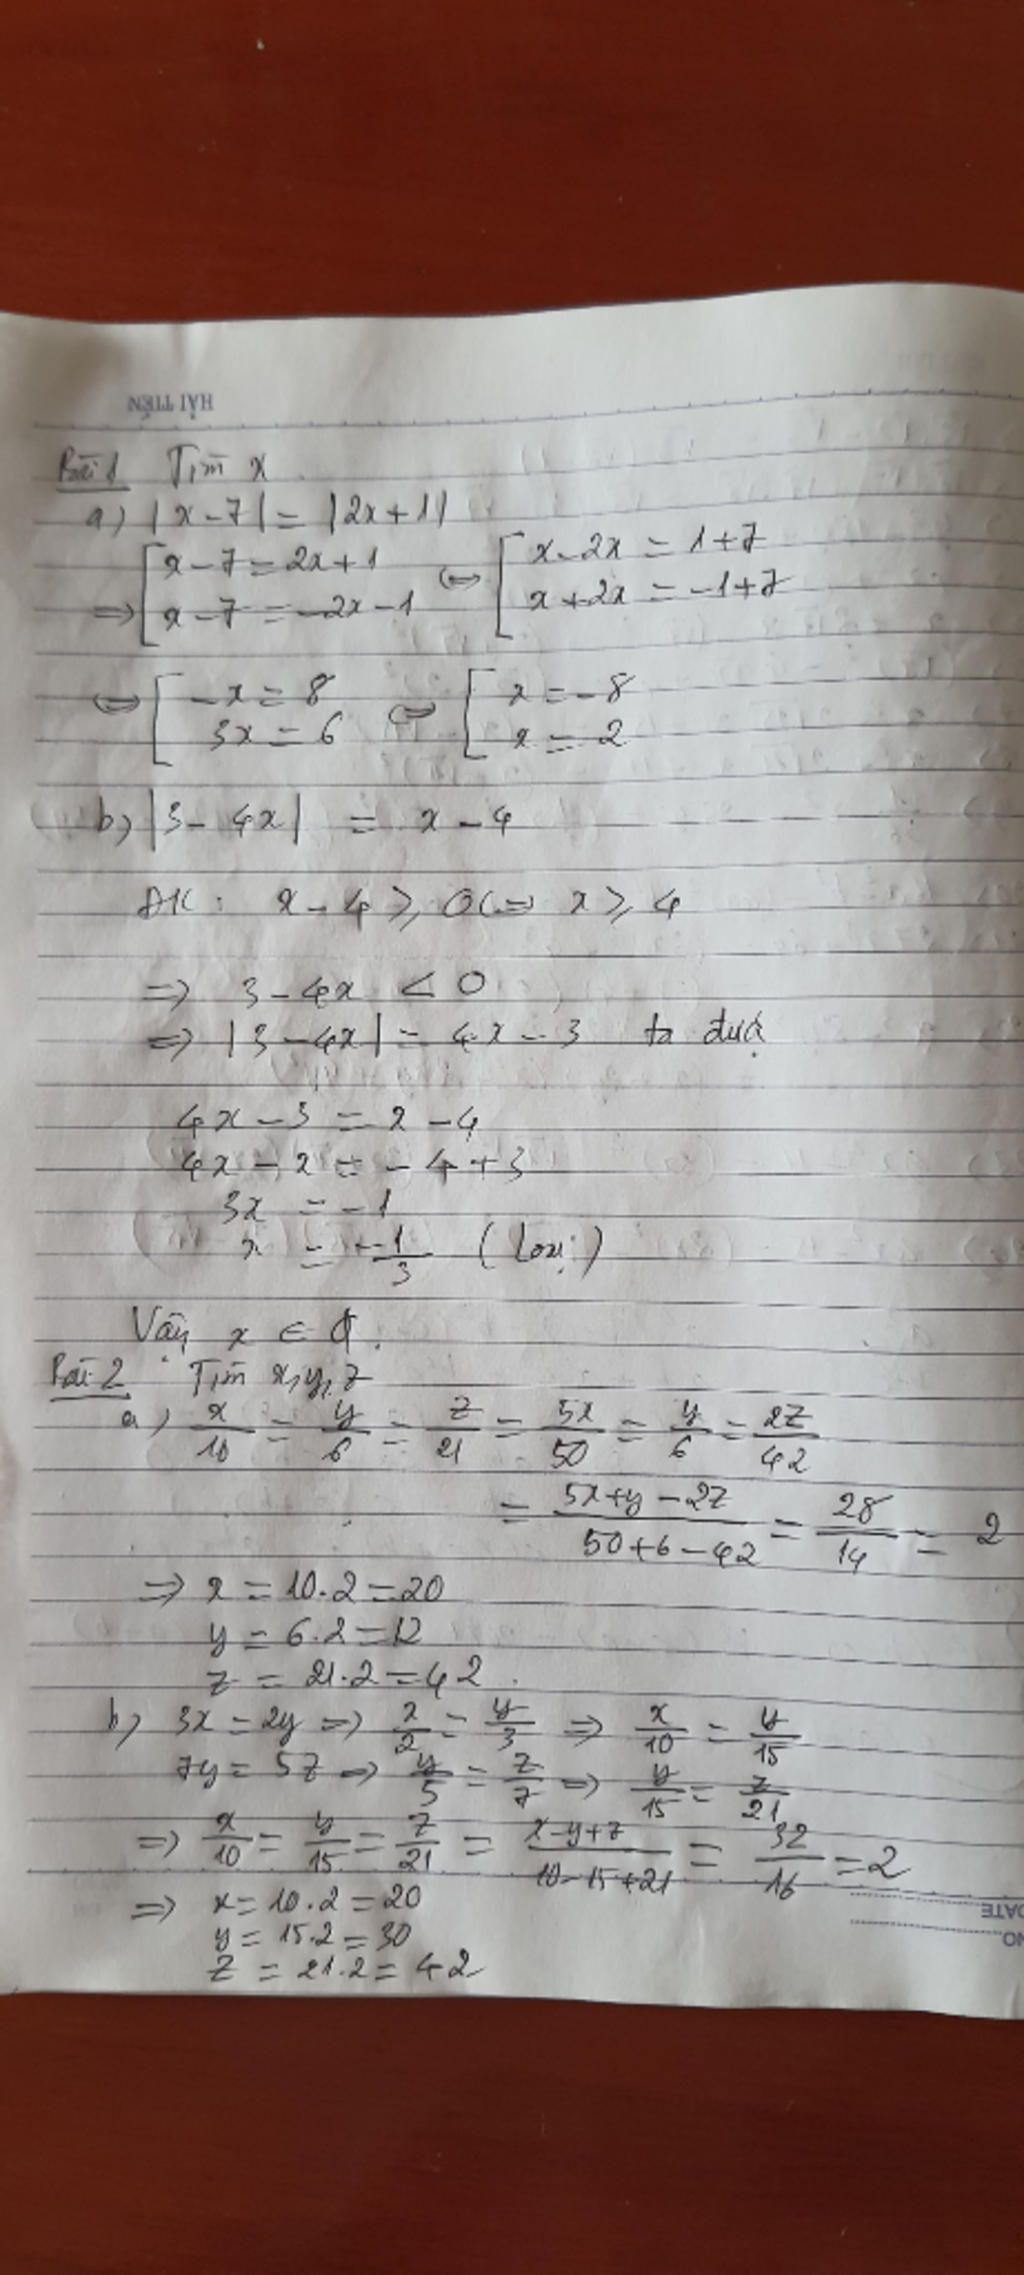 HẢI TIẾN
Bài 1 Tìm x
a) |x-7| = |2x+1|
=> [ x-7=2x+1 <=> [ x-2x = 1+7
x-7 = -2x-1 x+2x = -1+7
<=> [ -x = 8 <=> [ x = -8
3x = 6 x = 2
b) |3-4x| = x-4
ĐK: x-4 ≥ 0 <=> x ≥ 4
=> 3-4x < 0
=> |3-4x| = 4x-3 ta được
4x-3 = x-4
4x-x = -4+3
3x = -1
x = -1/3 (Loại)
Vậy x ∈ ∅.
Bài 2 Tìm x, y, z
a) x/10 = y/6 = z/21 = 5x/50 = y/6 = 2z/42
= (5x+y-2z)/(50+6-42) = 28/14 = 2
=> x = 10.2=20
y = 6.2=12
z = 21.2=42.
b) 3x=2y => x/2 = y/3 => x/10 = y/15
7y = 5z => y/5 = z/7 => y/15 = z/21
=> x/10 = y/15 = z/21 = (x-y+z)/(10-15+21) = 32/16 = 2
=> x=10.2=20
y = 15.2=30
z = 21.2=42
DATE
NO